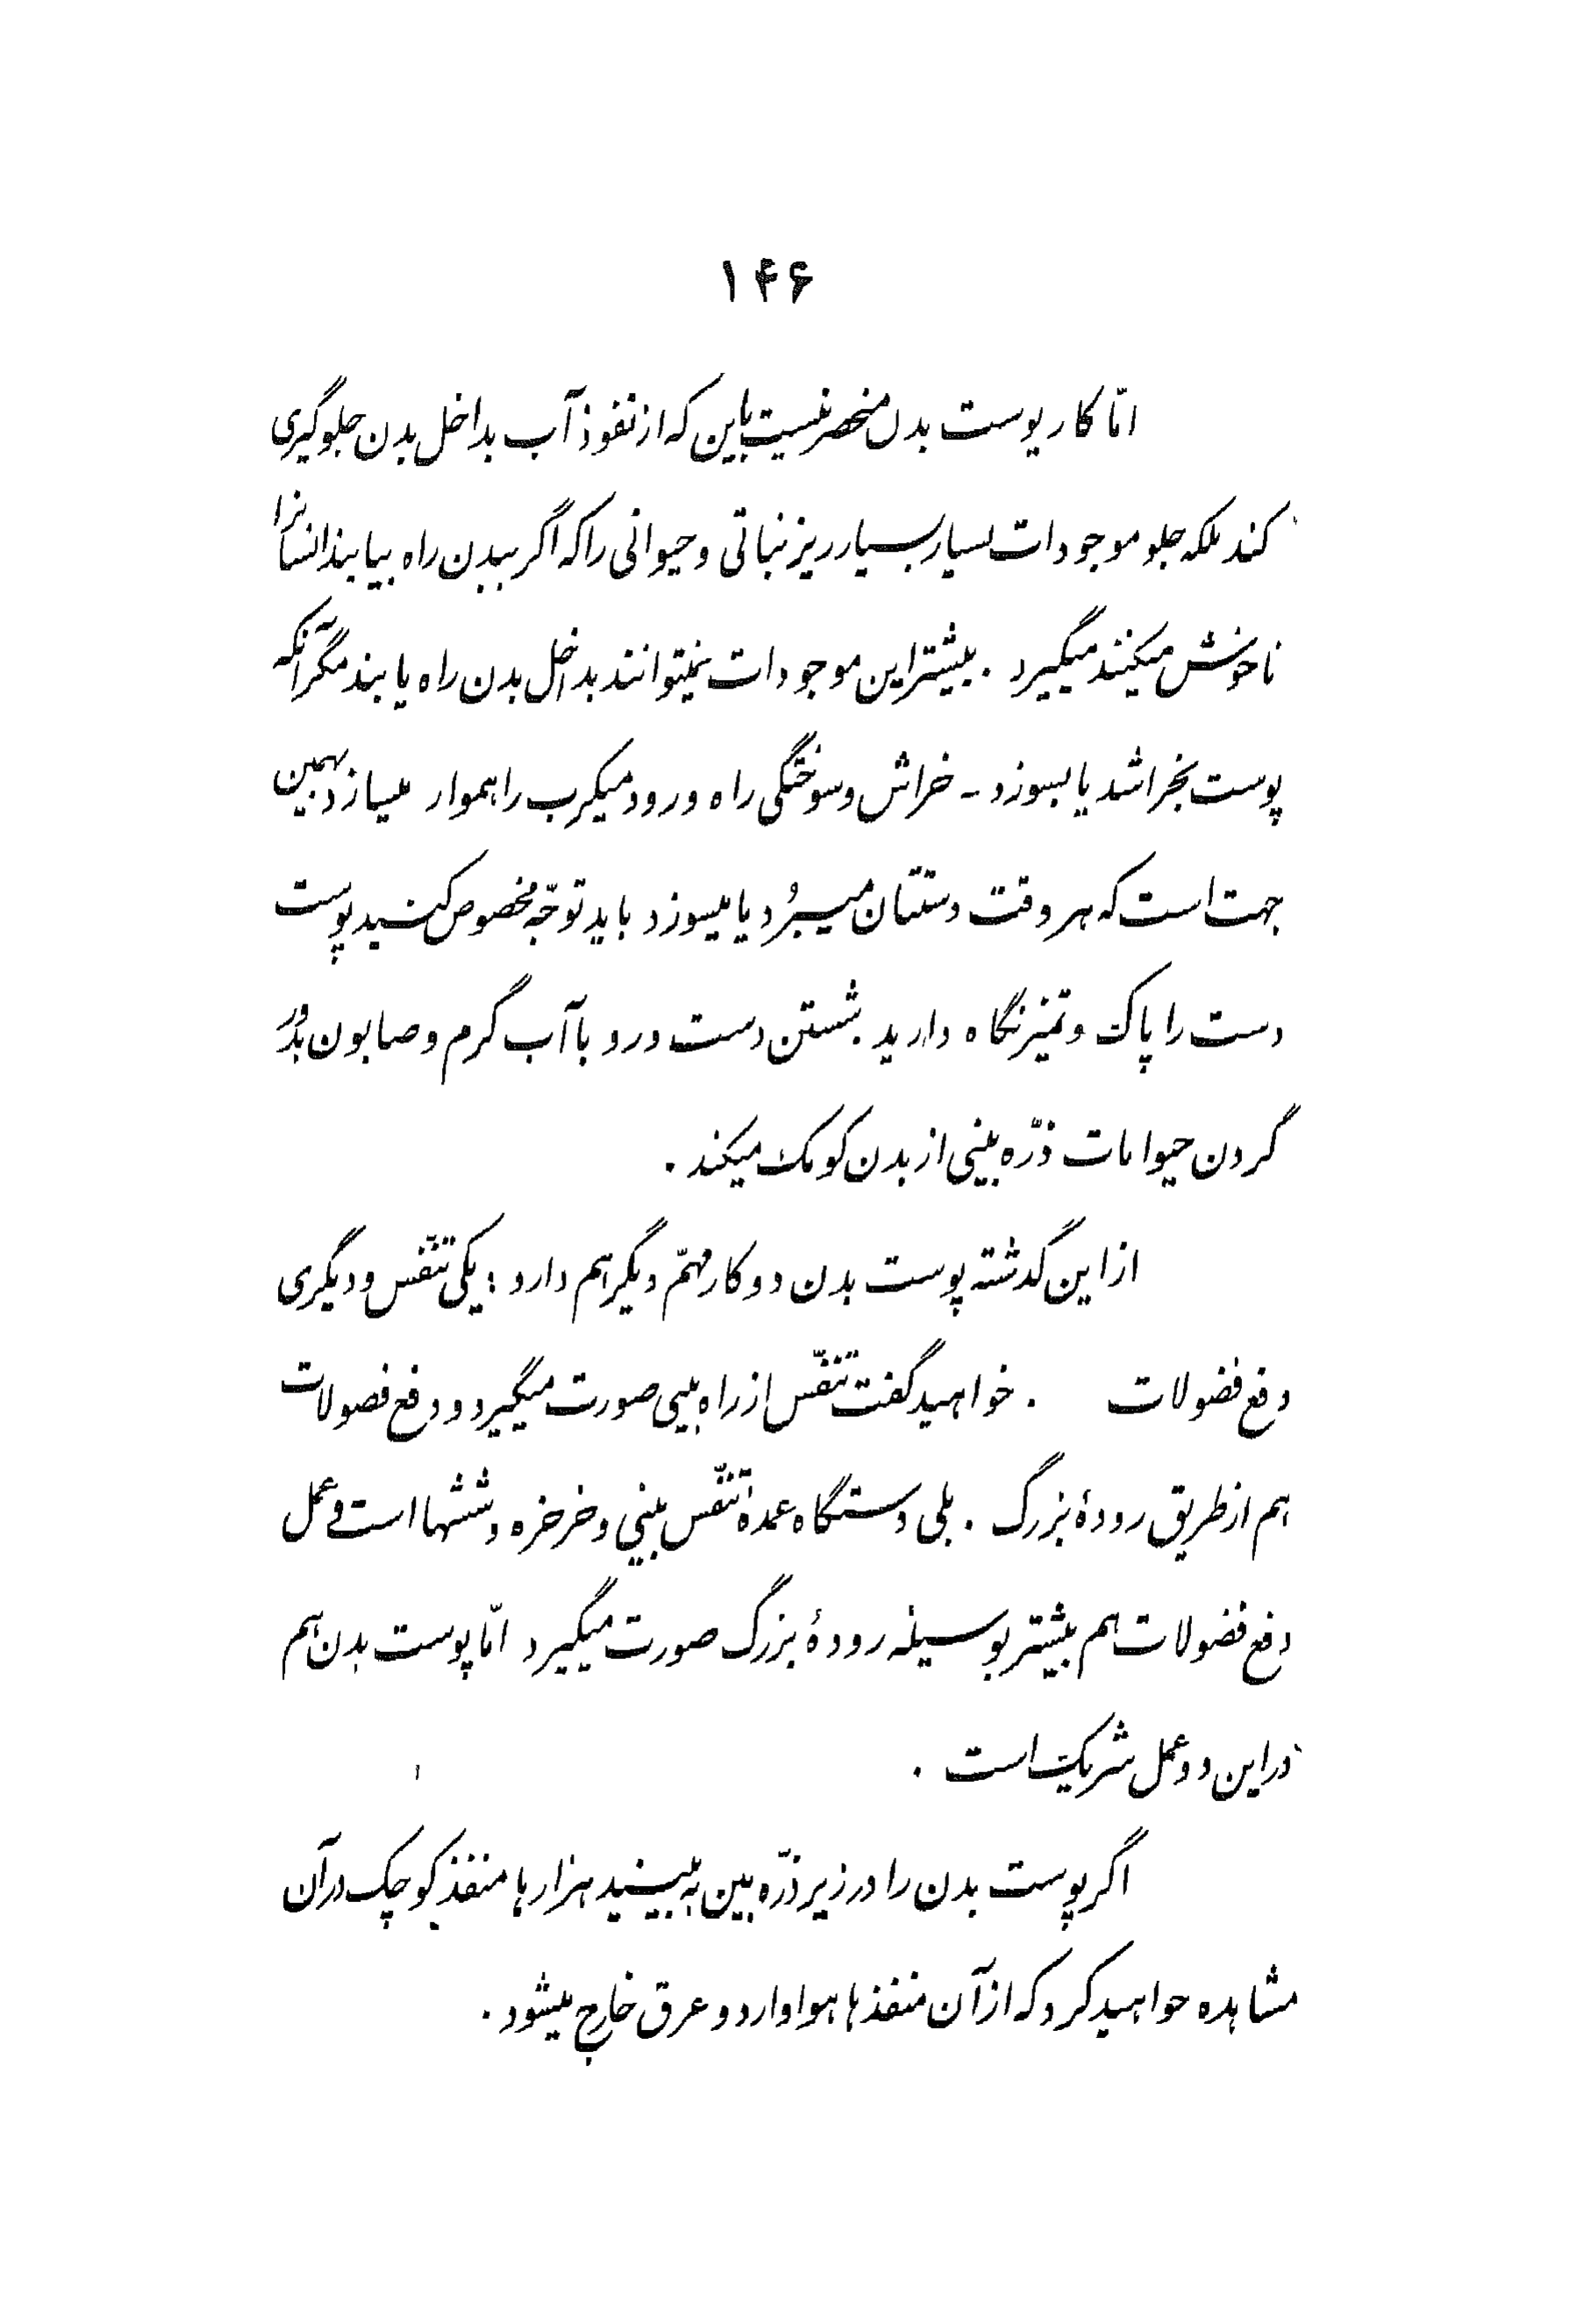 ۱۴۶
امّا کار پوست بدن منحصر نیست باین که از نفوذ آب بداخل بدن جلوگیری
کند بلکه جلو موجودات بسیار بسیار ریز نباتی و حیوانی را که اگر ببدن راه بیابند انسانرا
ناخوش میکنند میگیرد . بیشتر این موجودات نمیتوانند بداخل بدن راه یابند مگر آنکه
پوست بخراشد یا بسوزد - خراش و سوختگی راه ورود میکرب را هموار میسازد بهمین
جهت است که هر وقت دستتان میبُرد یا میسوزد باید توجّه مخصوص کنید پوست
دست را پاک و تمیز نگاه دارید . شستن دست و رو با آب گرم و صابون بدُور
کردن حیوانات ذرّه بینی از بدن کومک میکند .
از این گذشته پوست بدن دو کار مهمّ دیگر هم دارد : یکی تنفّس و دیگری
دفع فضولات . خواهید گفت تنفّس از راه بینی صورت میگیرد و دفع فضولات
هم از طریق رودهٔ بزرگ . بلی دستگاه عمدهٔ تنفّس بینی و خرخره و ششها است و عمل
دفع فضولات هم بیشتر بوسیلهٔ رودهٔ بزرگ صورت میگیرد امّا پوست بدن هم
در این دو عمل شریک است .
اگر پوست بدن را در زیر ذرّه بین به بینید هزارها منفذ کوچک در آن
مشاهده خواهید کرد که از آن منفذها هوا وارد و عرق خارج میشود .